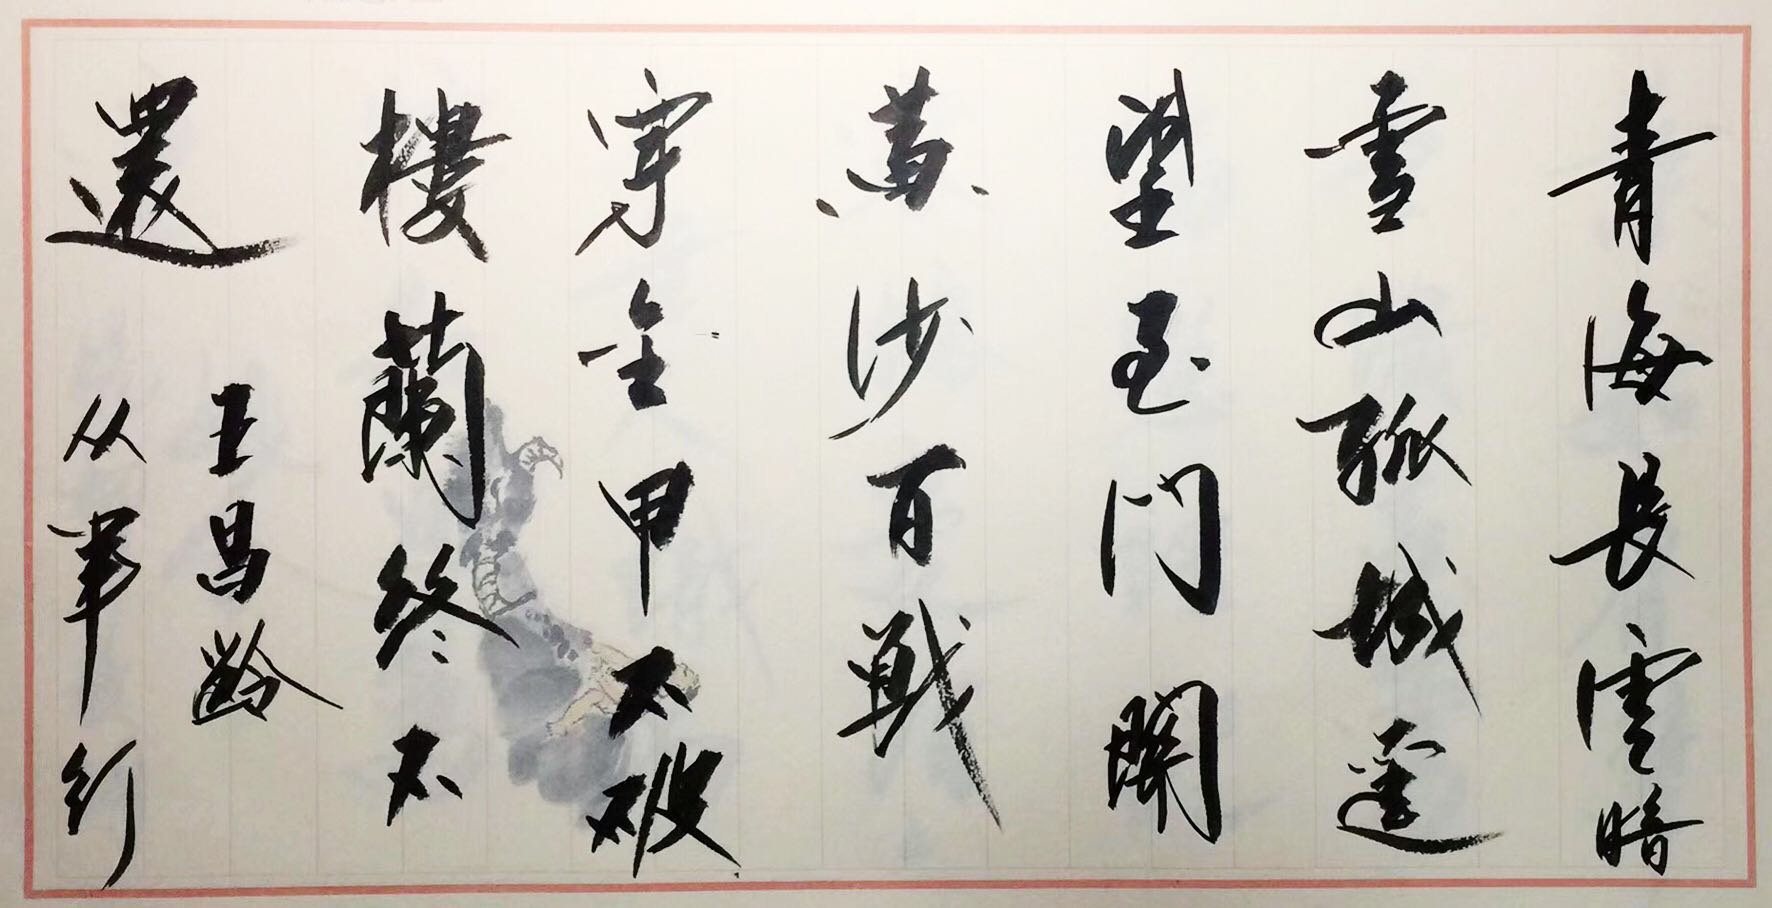 青海長雲暗
雪山孤城遥
望玉門關
黄沙百戰
穿金甲不破
樓蘭終不
還
王昌齡
从軍行